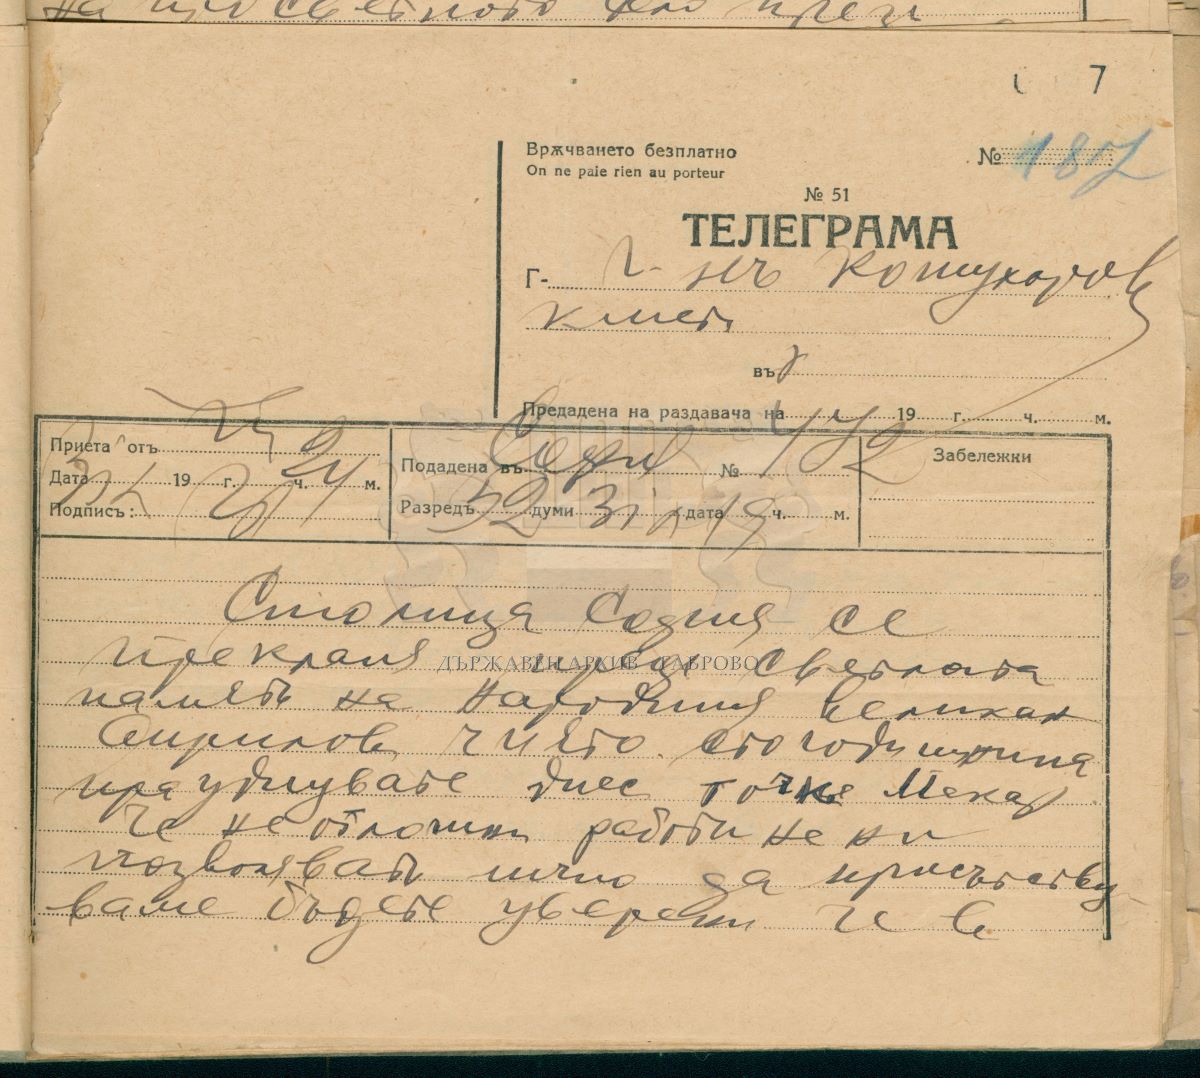 на просветното дело през
7
Врѫчването безплатно
On ne paie rien au porteur
№ 187
№ 51
ТЕЛЕГРАМА
Г- Г-нъ Кожухаров
кметъ
въ
Предадена на раздавача на 19 г. ч. м.
Приета отъ
Дата 19 г. ч. м.
Подпись:
Подадена въ София № 472
Разредъ 52 думи 31 дата 19 ч. м.
Забележки
Столица София се
прекланя пред светлата
паметь на Народния великан
Априлов чиято стогодишнина
празднувате днес точка Макар
че неотложни работи не ни
позволяватъ лично да присътству
ваме бъдете уверени че в
ДЪРЖАВЕН АРХИВ ГАБРОВО